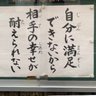 自分に満足
できないから
相手の幸せが
耐えられない